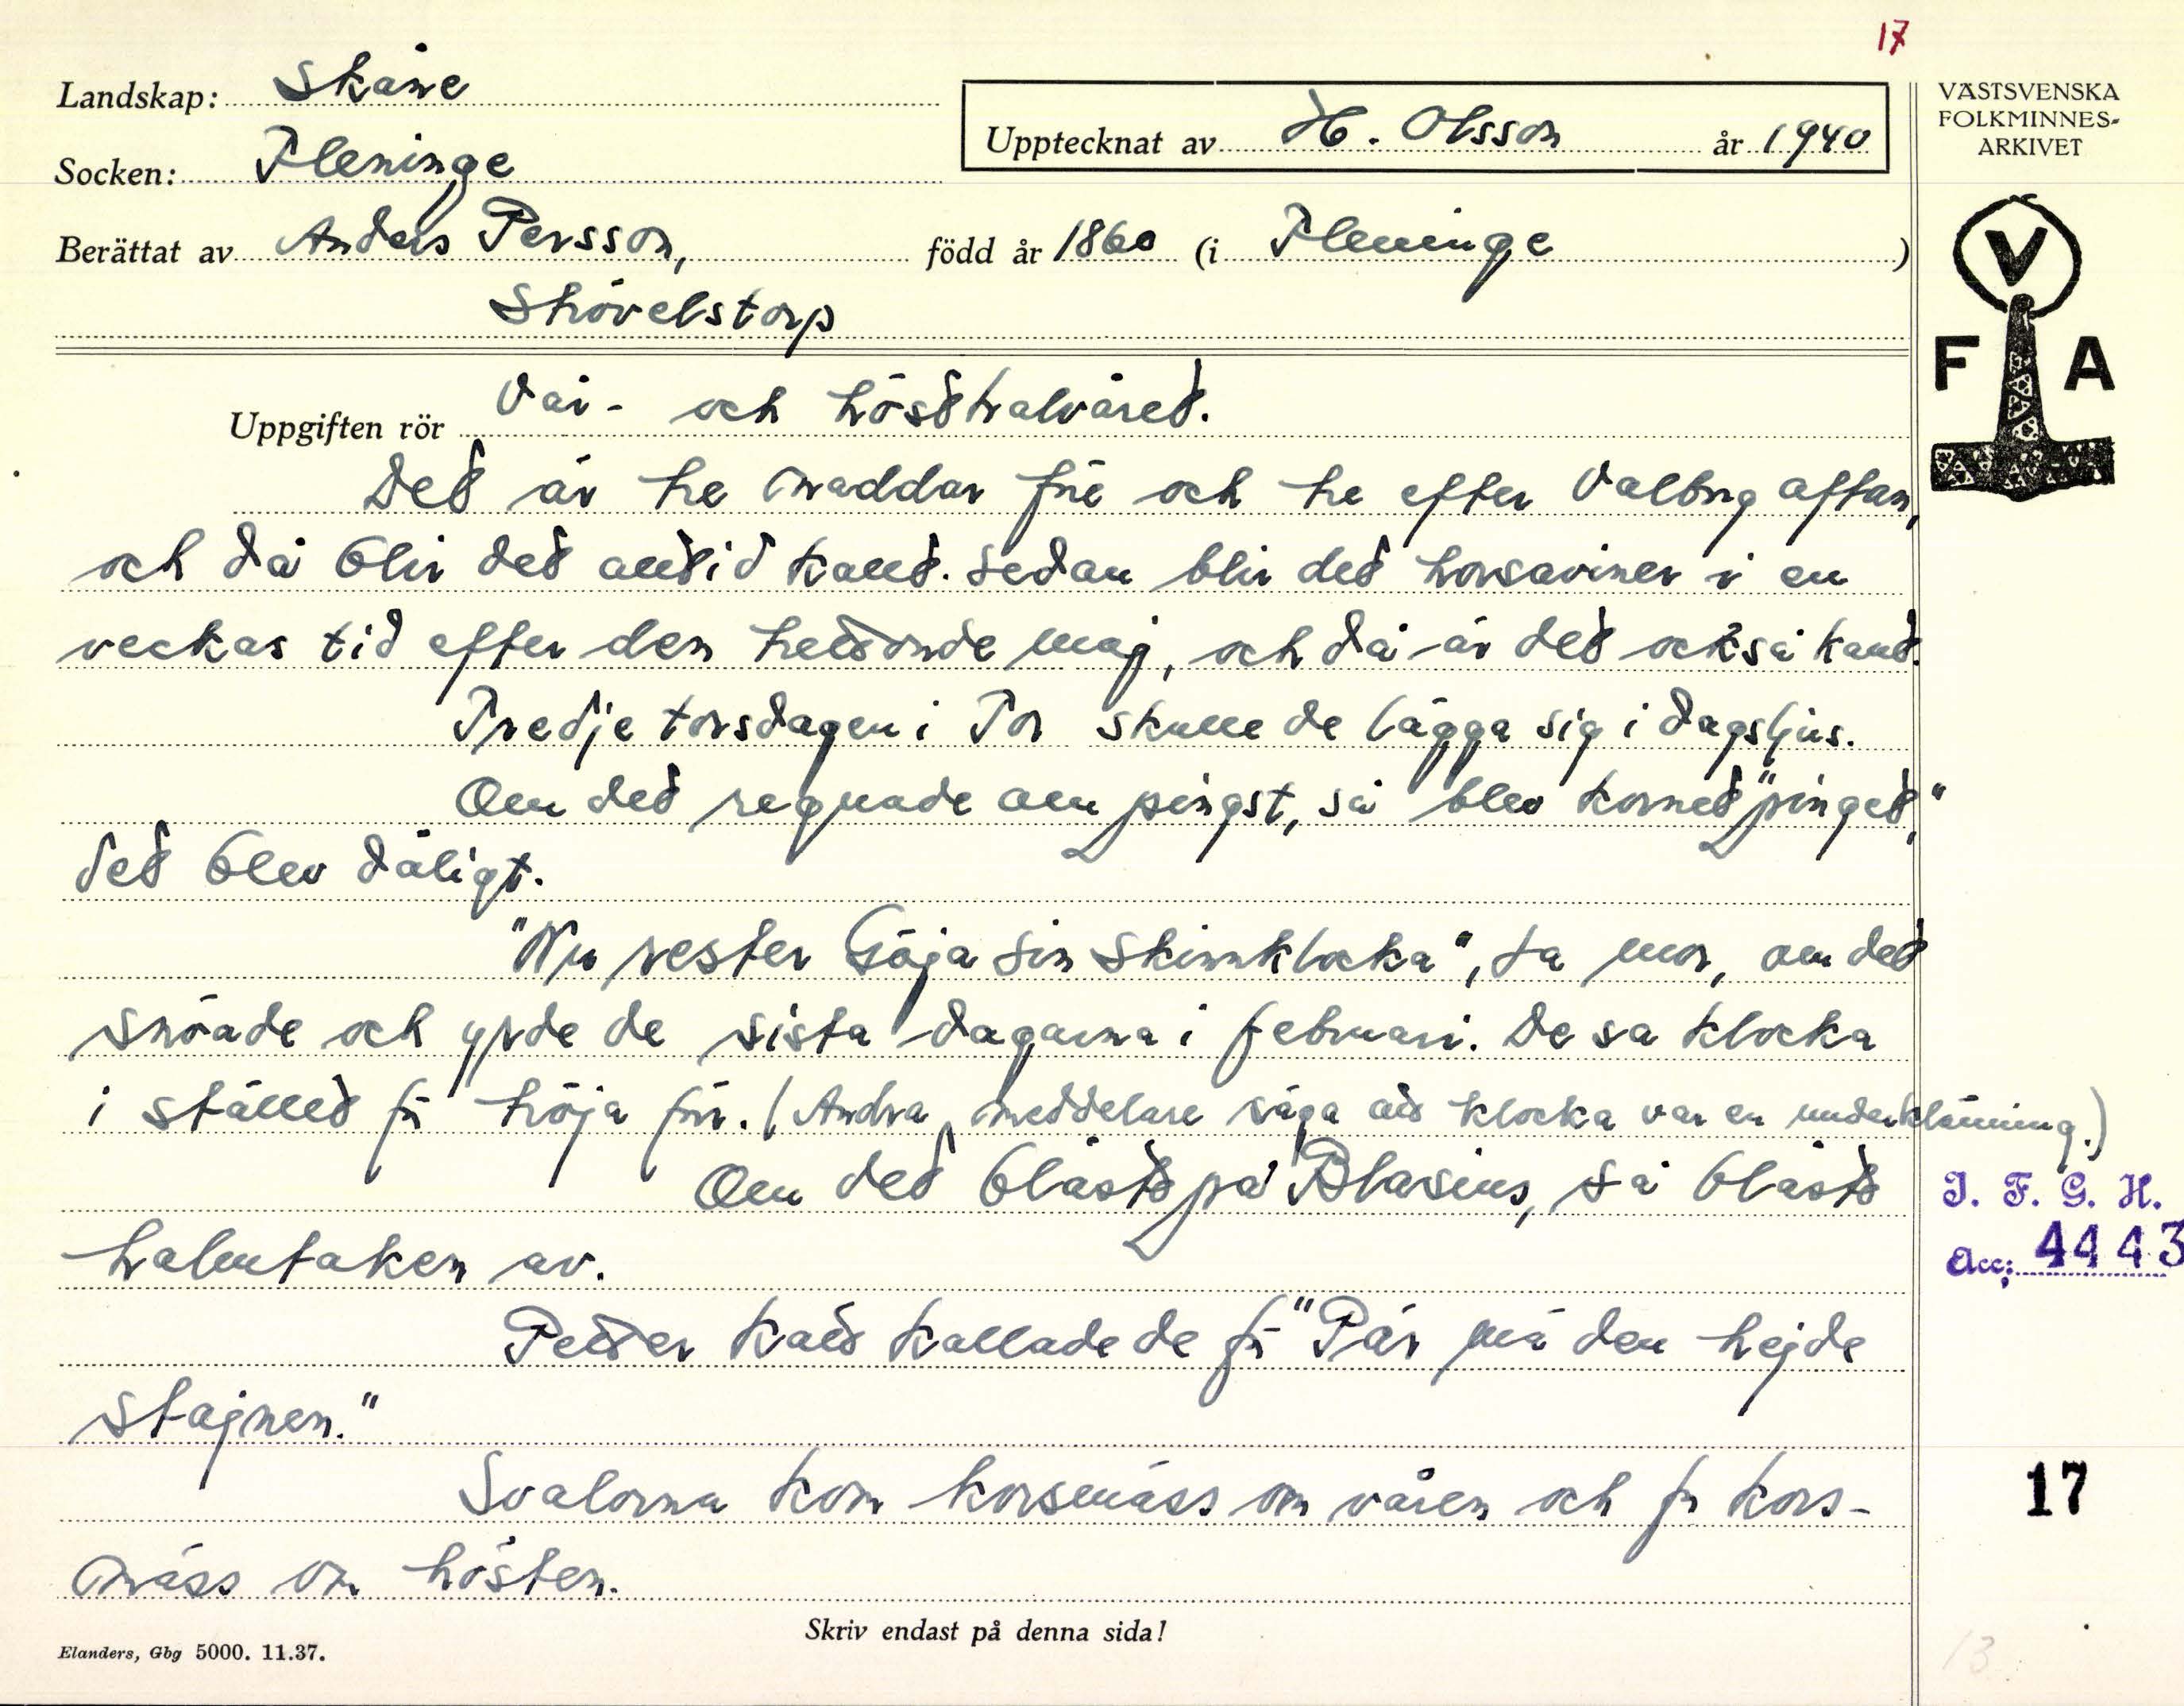 17
Landskap: Skåne
Socken: Fleninge
Upptecknat av H. Olsson år 1940
VÄSTSVENSKA
FOLKMINNES-
ARKIVET
Berättat av Anders Persson, född år 1860 (i Fleninge)
Skövelstorp
V
F A
Uppgiften rör Vår- och hösthalvåret.
Det är tre maddar före och tre efter Valborg afton,
och då blir det alltid kallt. Sedan blir det horsaviner i en
veckas tid efter den trettonde maj, och då är det också kallt.
Tredje torsdagen i Tor skulle de lägga sig i dagsljus.
Om det regnade om pingst, så blev kornet "pinget",
det blev dåligt.
"Nu rester Göja sin skinnklocka", sa mor, om det
snöade och yrde de sista dagarna i februari. De sa klocka
i stället för tröja förr. (Andra meddelare säga att klocka var en underklänning.)
Om det blåste på Blasius, så blåste
halmtaken av.
J. F. G. H.
Acc: 4443
Petter Katt kallade de för "Pär mä den hejde
stajnen."
Svalorna kom korsmäss om våren och for kors-
mäss om hösten.
17
Skriv endast på denna sida!
Elanders, Gbg 5000. 11.37.
13